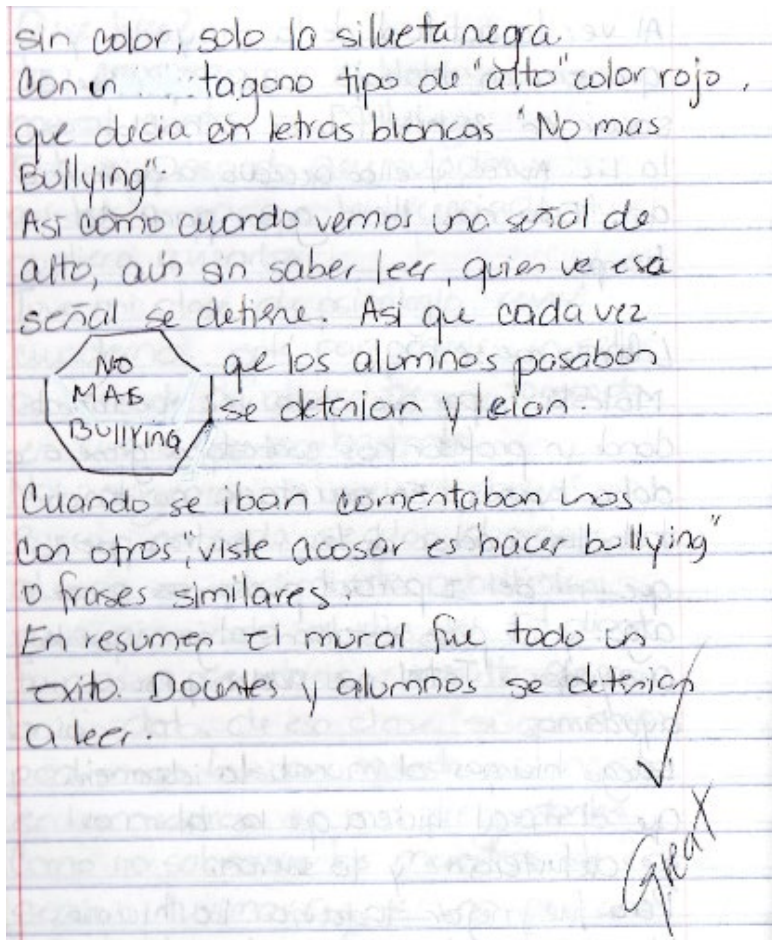 sin color, solo la silueta negra.
Con un tagono tipo de "alto" color rojo,
que decia en letras blancas "No mas
Bullying".
Asi como cuando vemos una señal de
alto, aun sin saber leer, quien ve esa
señal se detiene. Asi que cada vez
que los alumnos pasaban
se detenian y leian.
NO
MAS
BUllYing
Cuando se iban comentaban unos
con otros, "viste acosar es hacer bullying"
o frases similares.
En resumen el mural fue todo un
exito. Docentes y alumnos se detenian
a leer.
Great